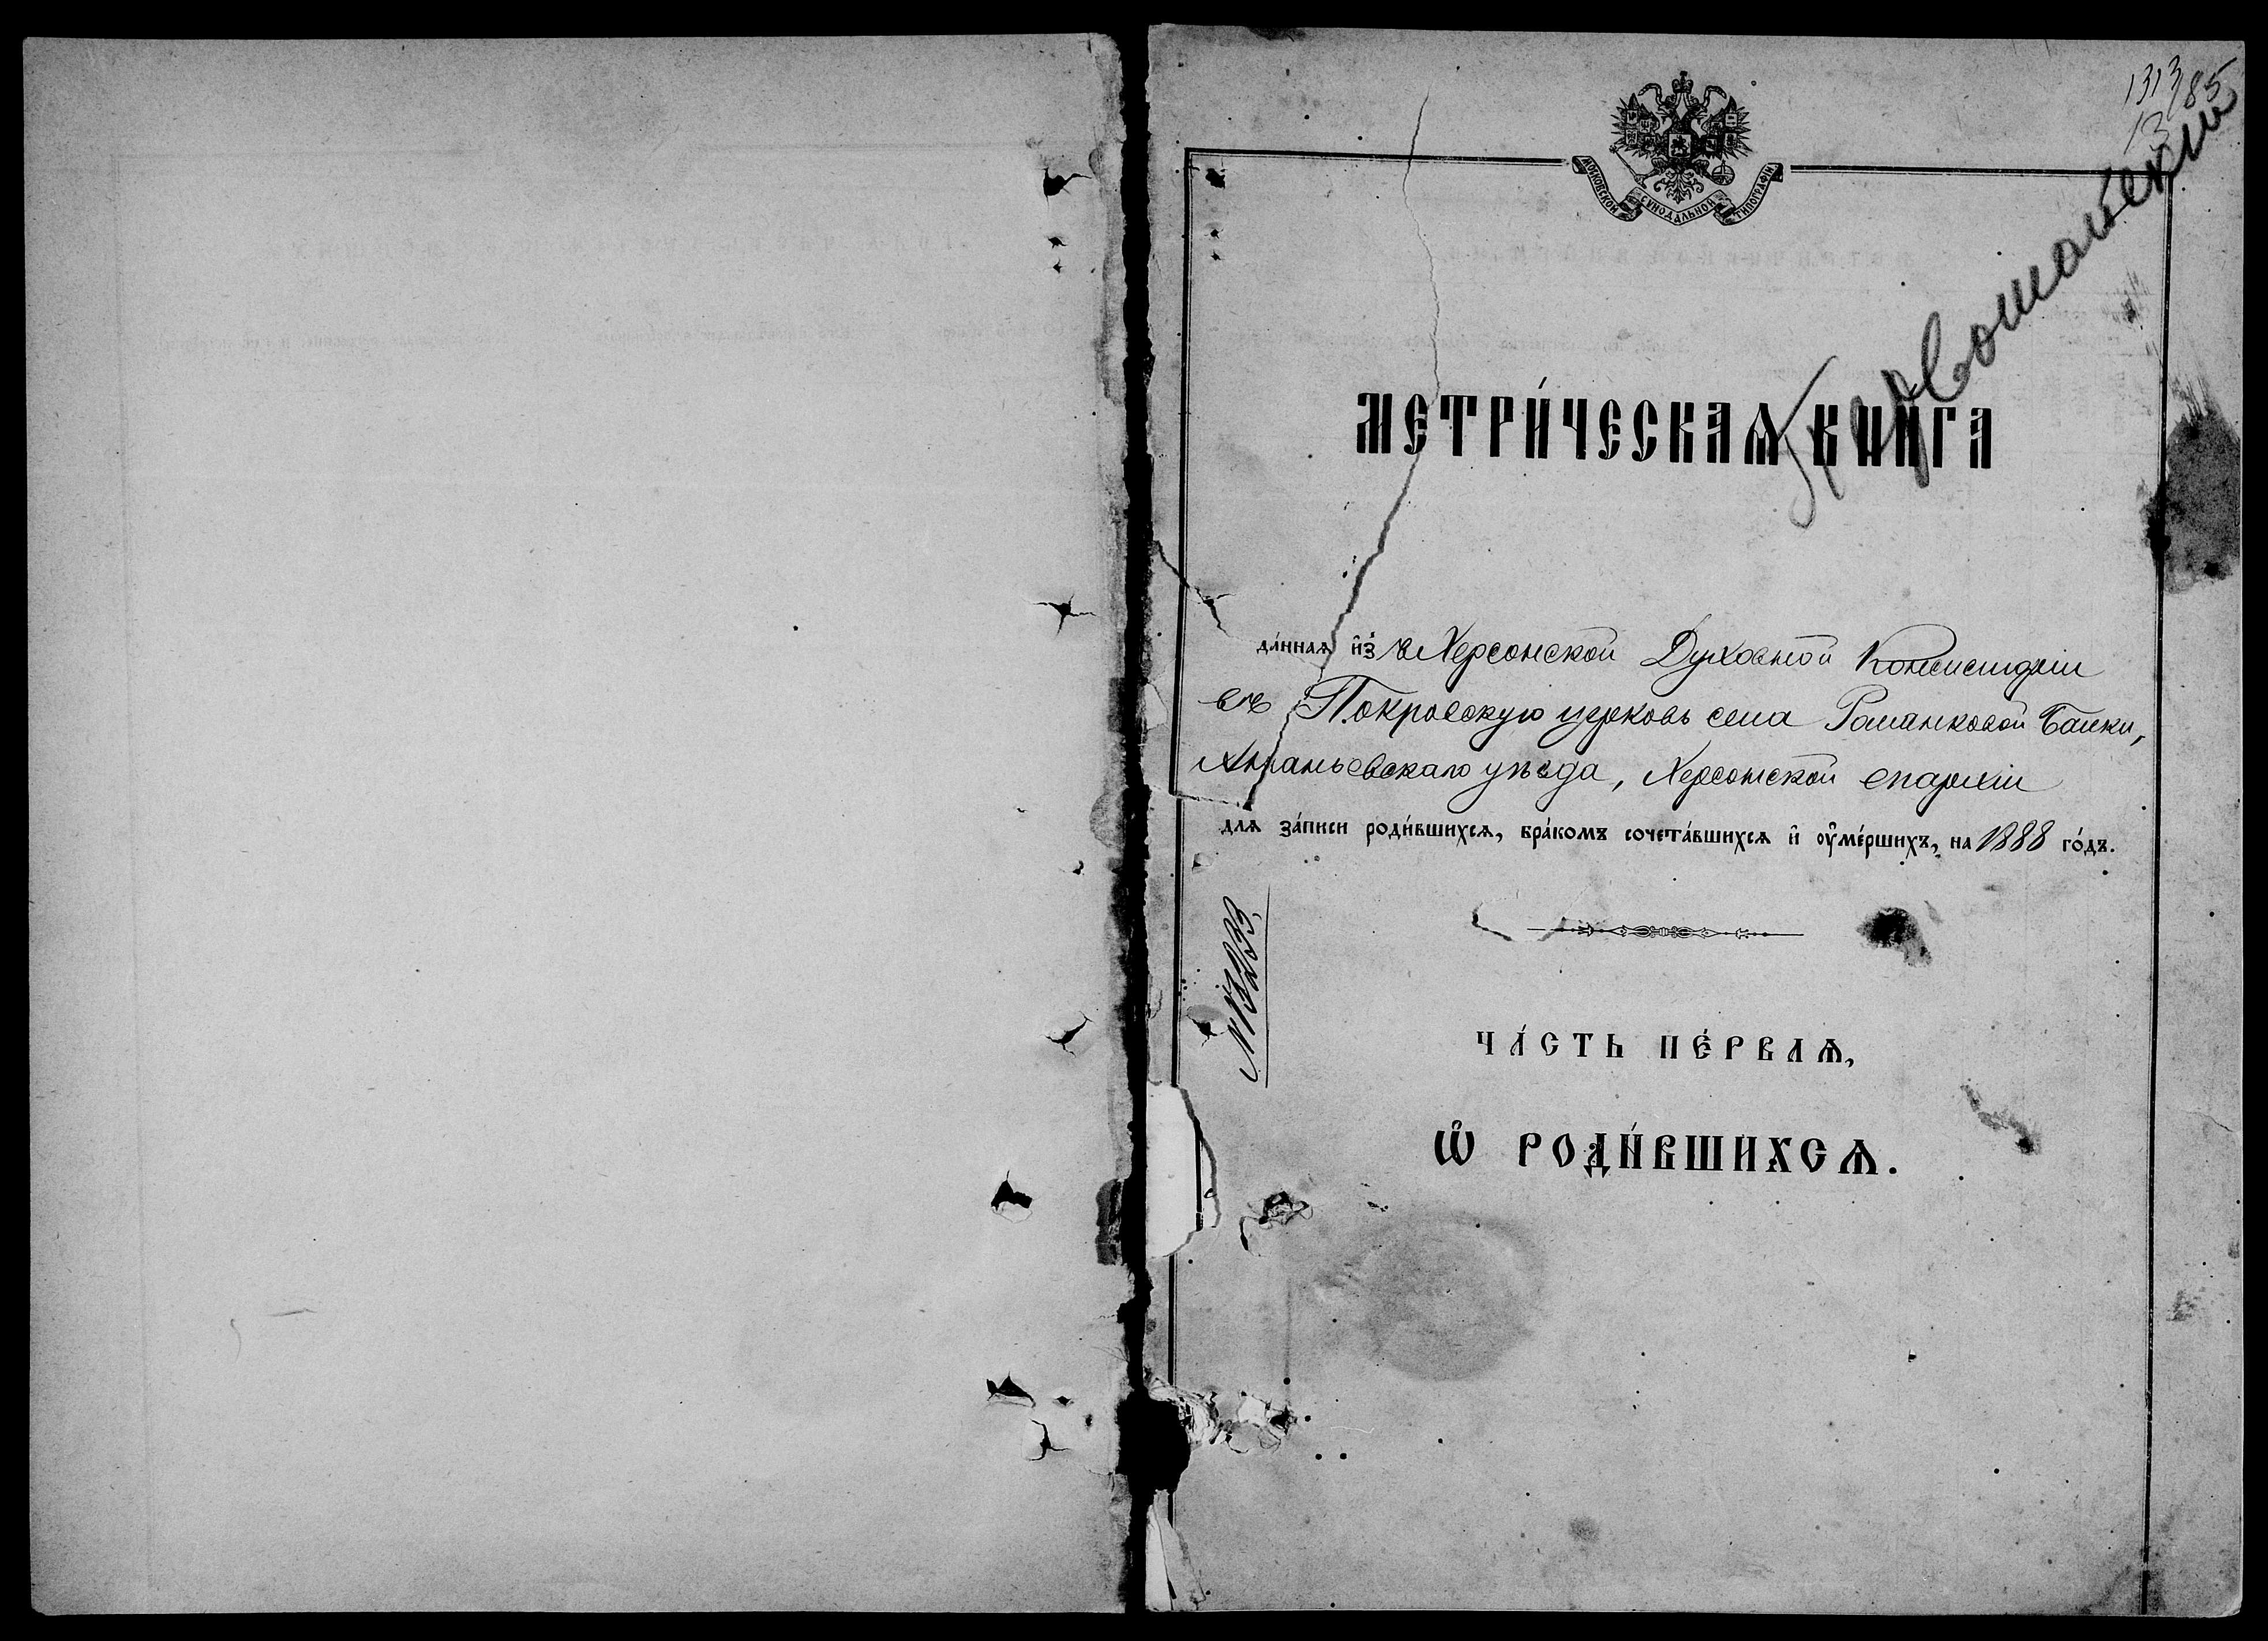 1313/85
13
Первомайский
МОСКОВСКОЙ СѴНОДАЛЬНОЙ ТИПОГРАФІИ
МЕТРИ́ЧЕСКАѦ КНИ́ГА
да́ннаѧ и҆з̾ Херсонской Духовной Консисторіи
въ Покровскую церковь села Романковой Балки,
Ананьевскаго уѣзда, Херсонской епархіи
для за́писи роди́вшихсѧ, бра́комъ сочета́вшихсѧ и҆ ᲂу҆ме́ршихъ, на 1888 го́дъ.
ЧА́СТЬ ПЕ́РВАѦ,
Ѡ҆ РОДИ́ВШИХСѦ.